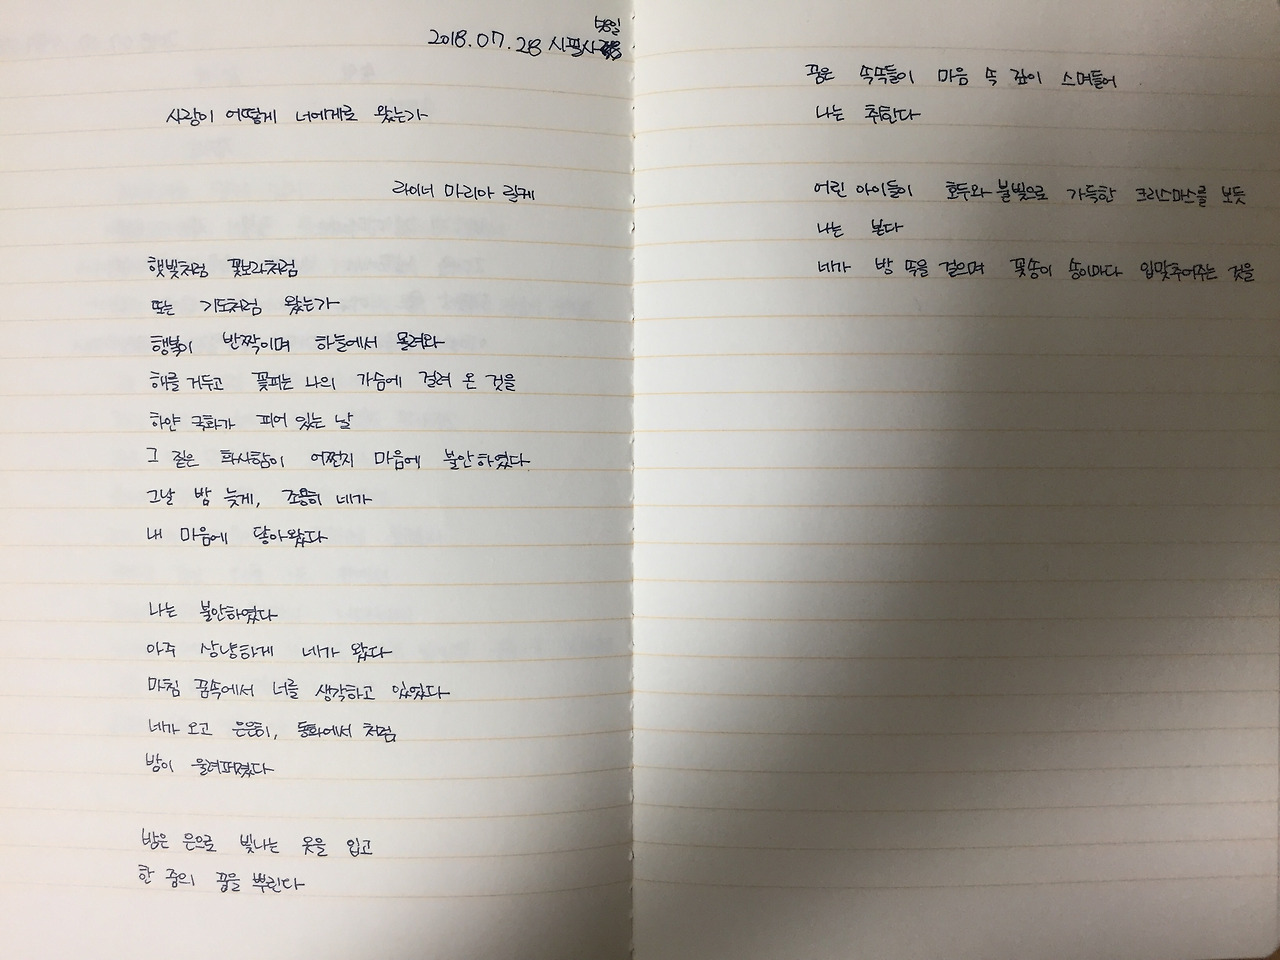 2018.07.28 시필사 58일
사랑이 어떻게 너에게로 왔는가
라이너 마리아 릴케
햇빛처럼 꽃보라처럼
또는 기도처럼 왔는가
행복이 반짝이며 하늘에서 몰려와
해를 거두고 꽃피는 나의 가슴에 걸려 온 것을
하얀 국화가 피어 있는 날
그 짙은 화사함이 어쩐지 마음에 불안하였다.
그날 밤 늦게, 조용히 네가
내 마음에 닿아왔다
나는 불안하였다
아주 상냥하게 네가 왔다
마침 꿈속에서 너를 생각하고 있었다
네가 오고 은은히, 동화에서 처럼
밤이 울려퍼졌다
밤은 은으로 빛나는 옷을 입고
한 줌의 꿈을 뿌린다
꿈은 속속들이 마음 속 깊이 스며들어
나는 취한다
어린 아이들이 호두와 불빛으로 가득한 크리스마스를 보듯
나는 본다
네가 밤 속을 걸으며 꽃송이 송이마다 입맞추어주는 것을